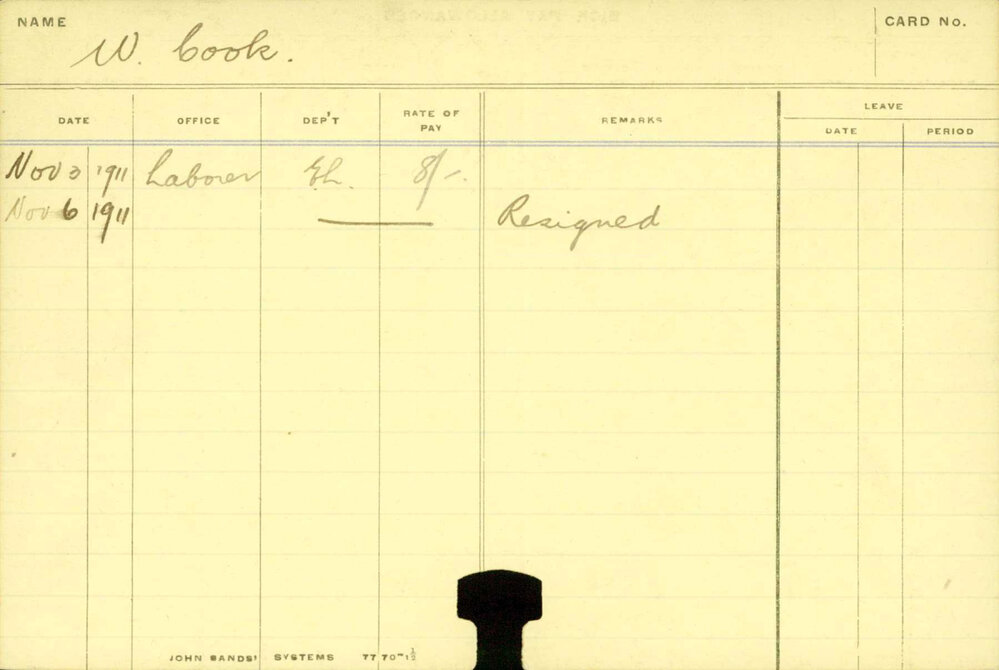 NAME W. Cook. CARD No.
LEAVE
DATE OFFICE DEP'T RATE OF PAY REMARKS DATE PERIOD
Nov 3 1911 Laborer Eh. 8/-.
Nov 6 1911 Resigned
JOHN SANDS' SYSTEMS 77 70